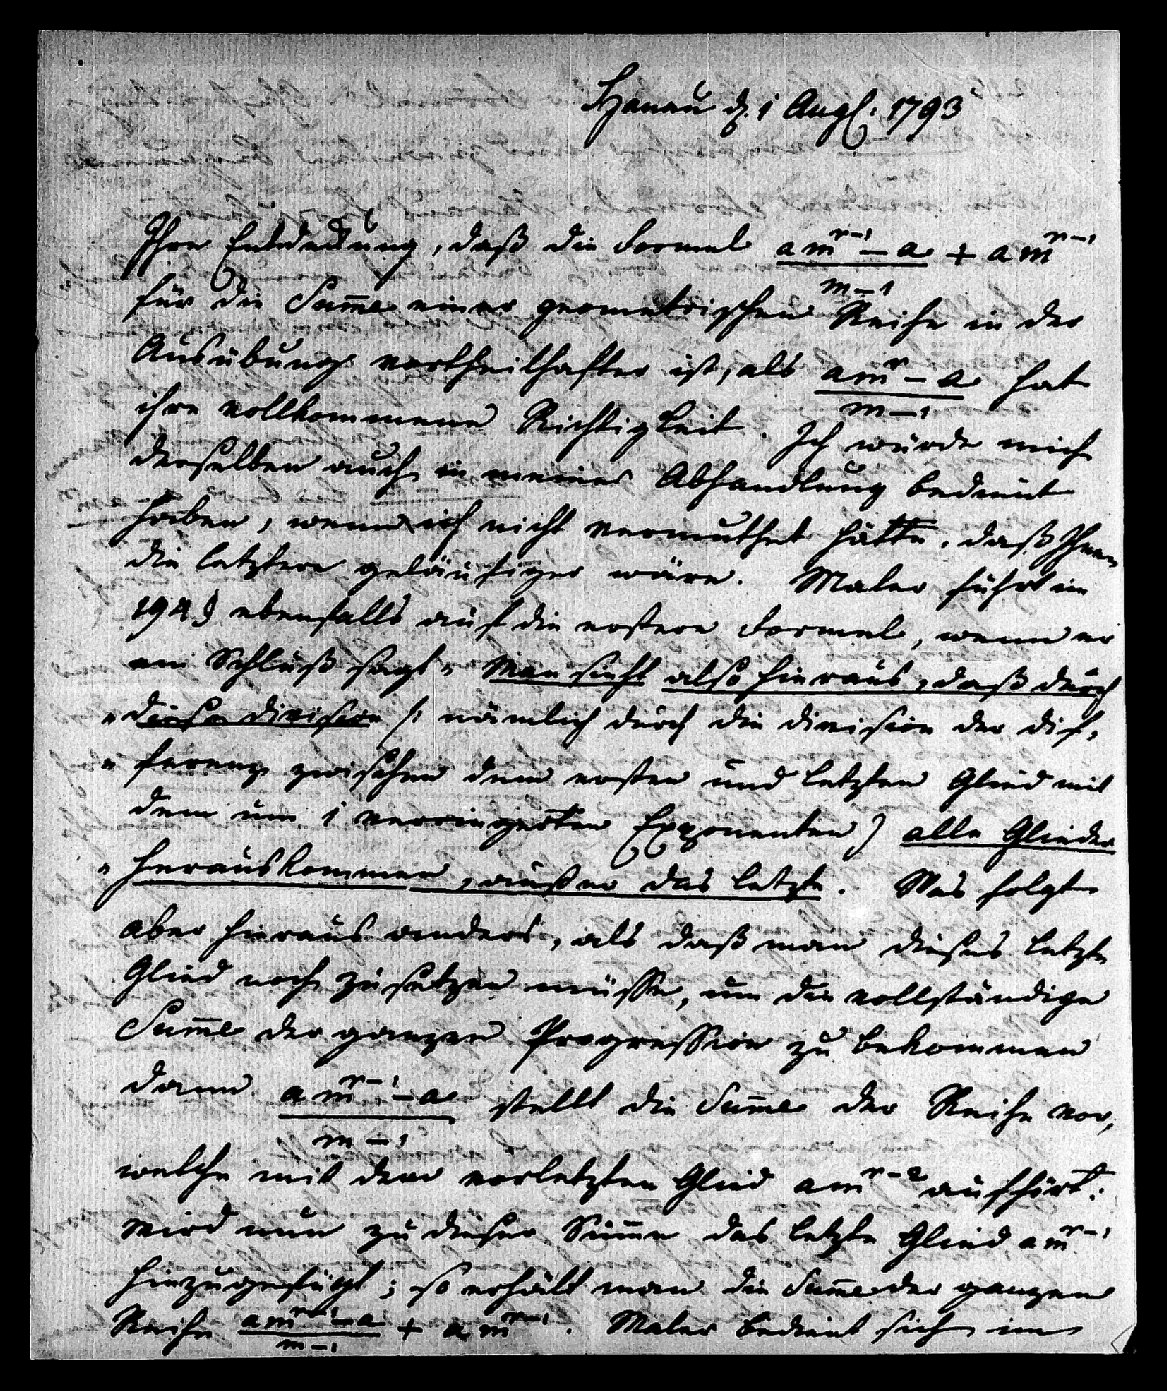 Hanau d. 1 Aug. 1793
Ihre Entdeckung, daß die Formel (am^{n-1} - a)/(m - 1) + am^{n-1}
für die Sum̄e einer geometrischen Reihe in der
Ausübung vortheilhafter ist, als (am^n - a)/(m - 1) hat
ihre vollkommene Richtigkeit. Ich würde mich
derselben auch in meiner Abhandlung bedient
haben, wenn ich nicht vermuthet hätte, daß Ihnen
die letztere geläufiger wäre. Maler führt im
194 § ebenfalls auf die erstere Formel, wenn er
am Schluß sagt „Man sieht also hieraus, daß durch
„diese Division /: nämlich durch die Division der Dif-
„ferenz zwischen dem ersten und letzten Glied mit
dem um 1 verringerten Exponenten) alle Glieder
„herauskommen, außer das letzte. Was folgt
aber hieraus anders, als daß man dieses letzte
Glied noch zusetzen müsse, um die vollständige
Sum̄e der ganzen Progression zu bekommen
dann (am^{n-1} - a)/(m - 1) stellt die Sum̄e der Reihe vor,
welche mit dem vorletzten Glied am^{n-2} aufhört:
wird nun zu dieser Sum̄e das letzte Glied am^{n-1}
hinzugefügt; so erhält man die Sum̄e der ganzen
Reihe (am^{n-1} - a)/(m - 1) + am^{n-1}. Maler bedient sich im